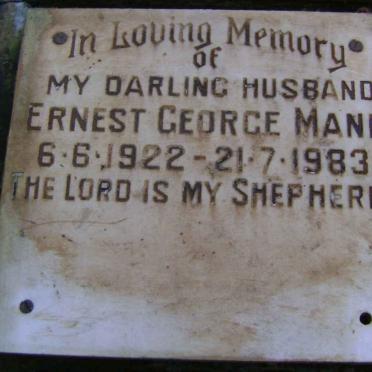 In Loving Memory
of
MY DARLING HUSBAND
ERNEST GEORGE
6·6·1922 - 21·7·1983
THE LORD IS MY SHEPHERD